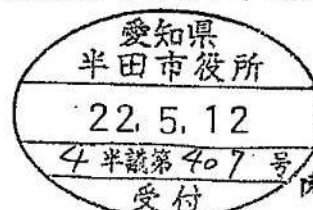 愛知県
半田市役所
22.5.12
4半議第407号
受付